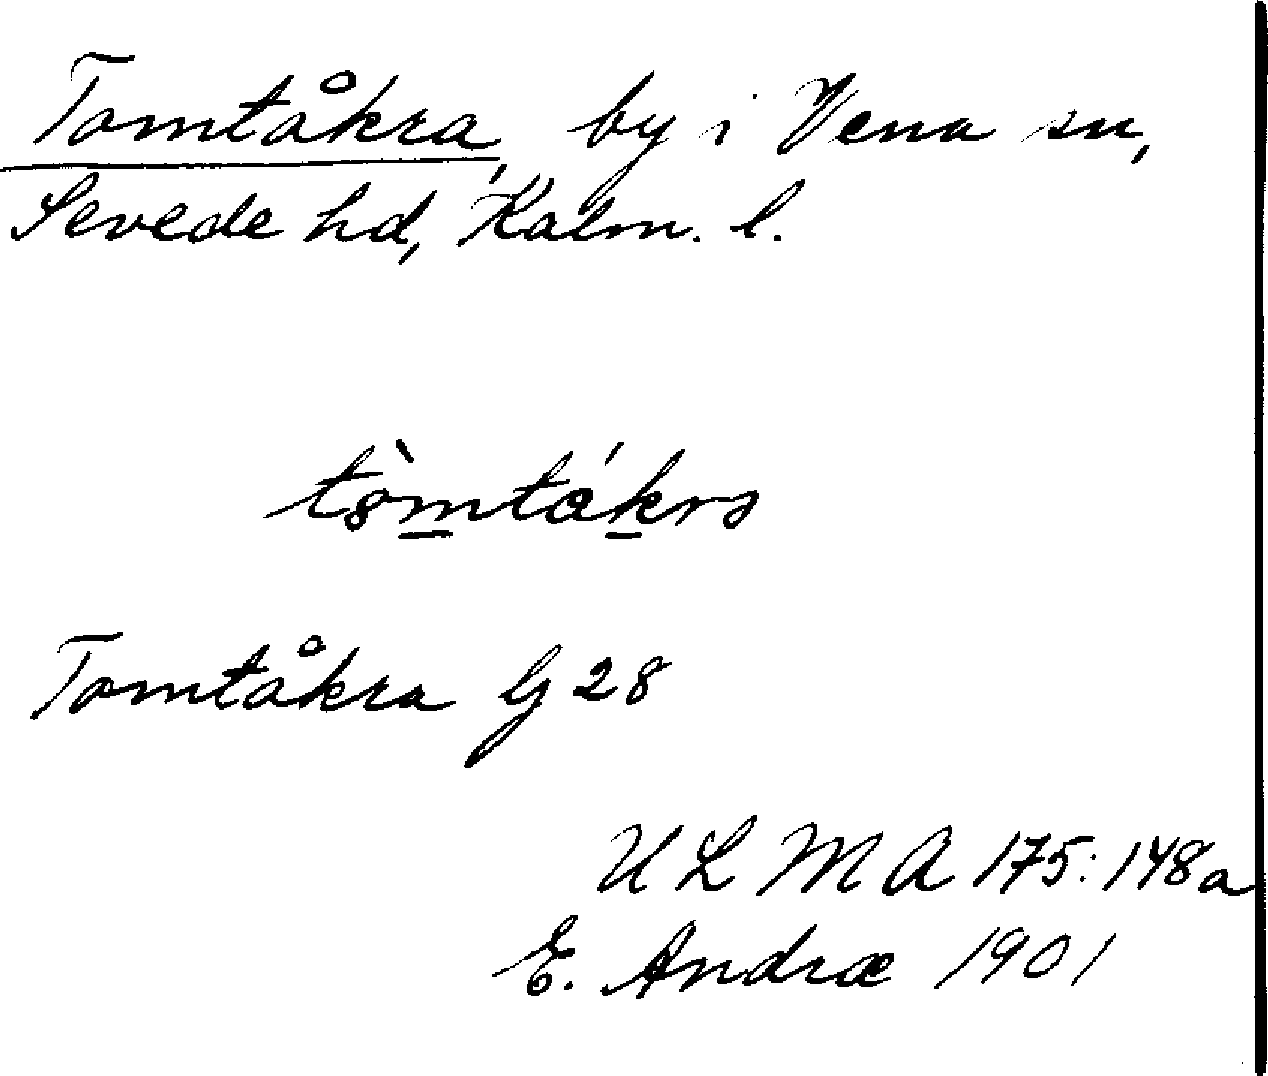 Tomtåkra, by i Vena sn,
Sevede hd, Kalm. l.
Tomtåkra G 28
U L M A 175:148a
E. Andræ 1901